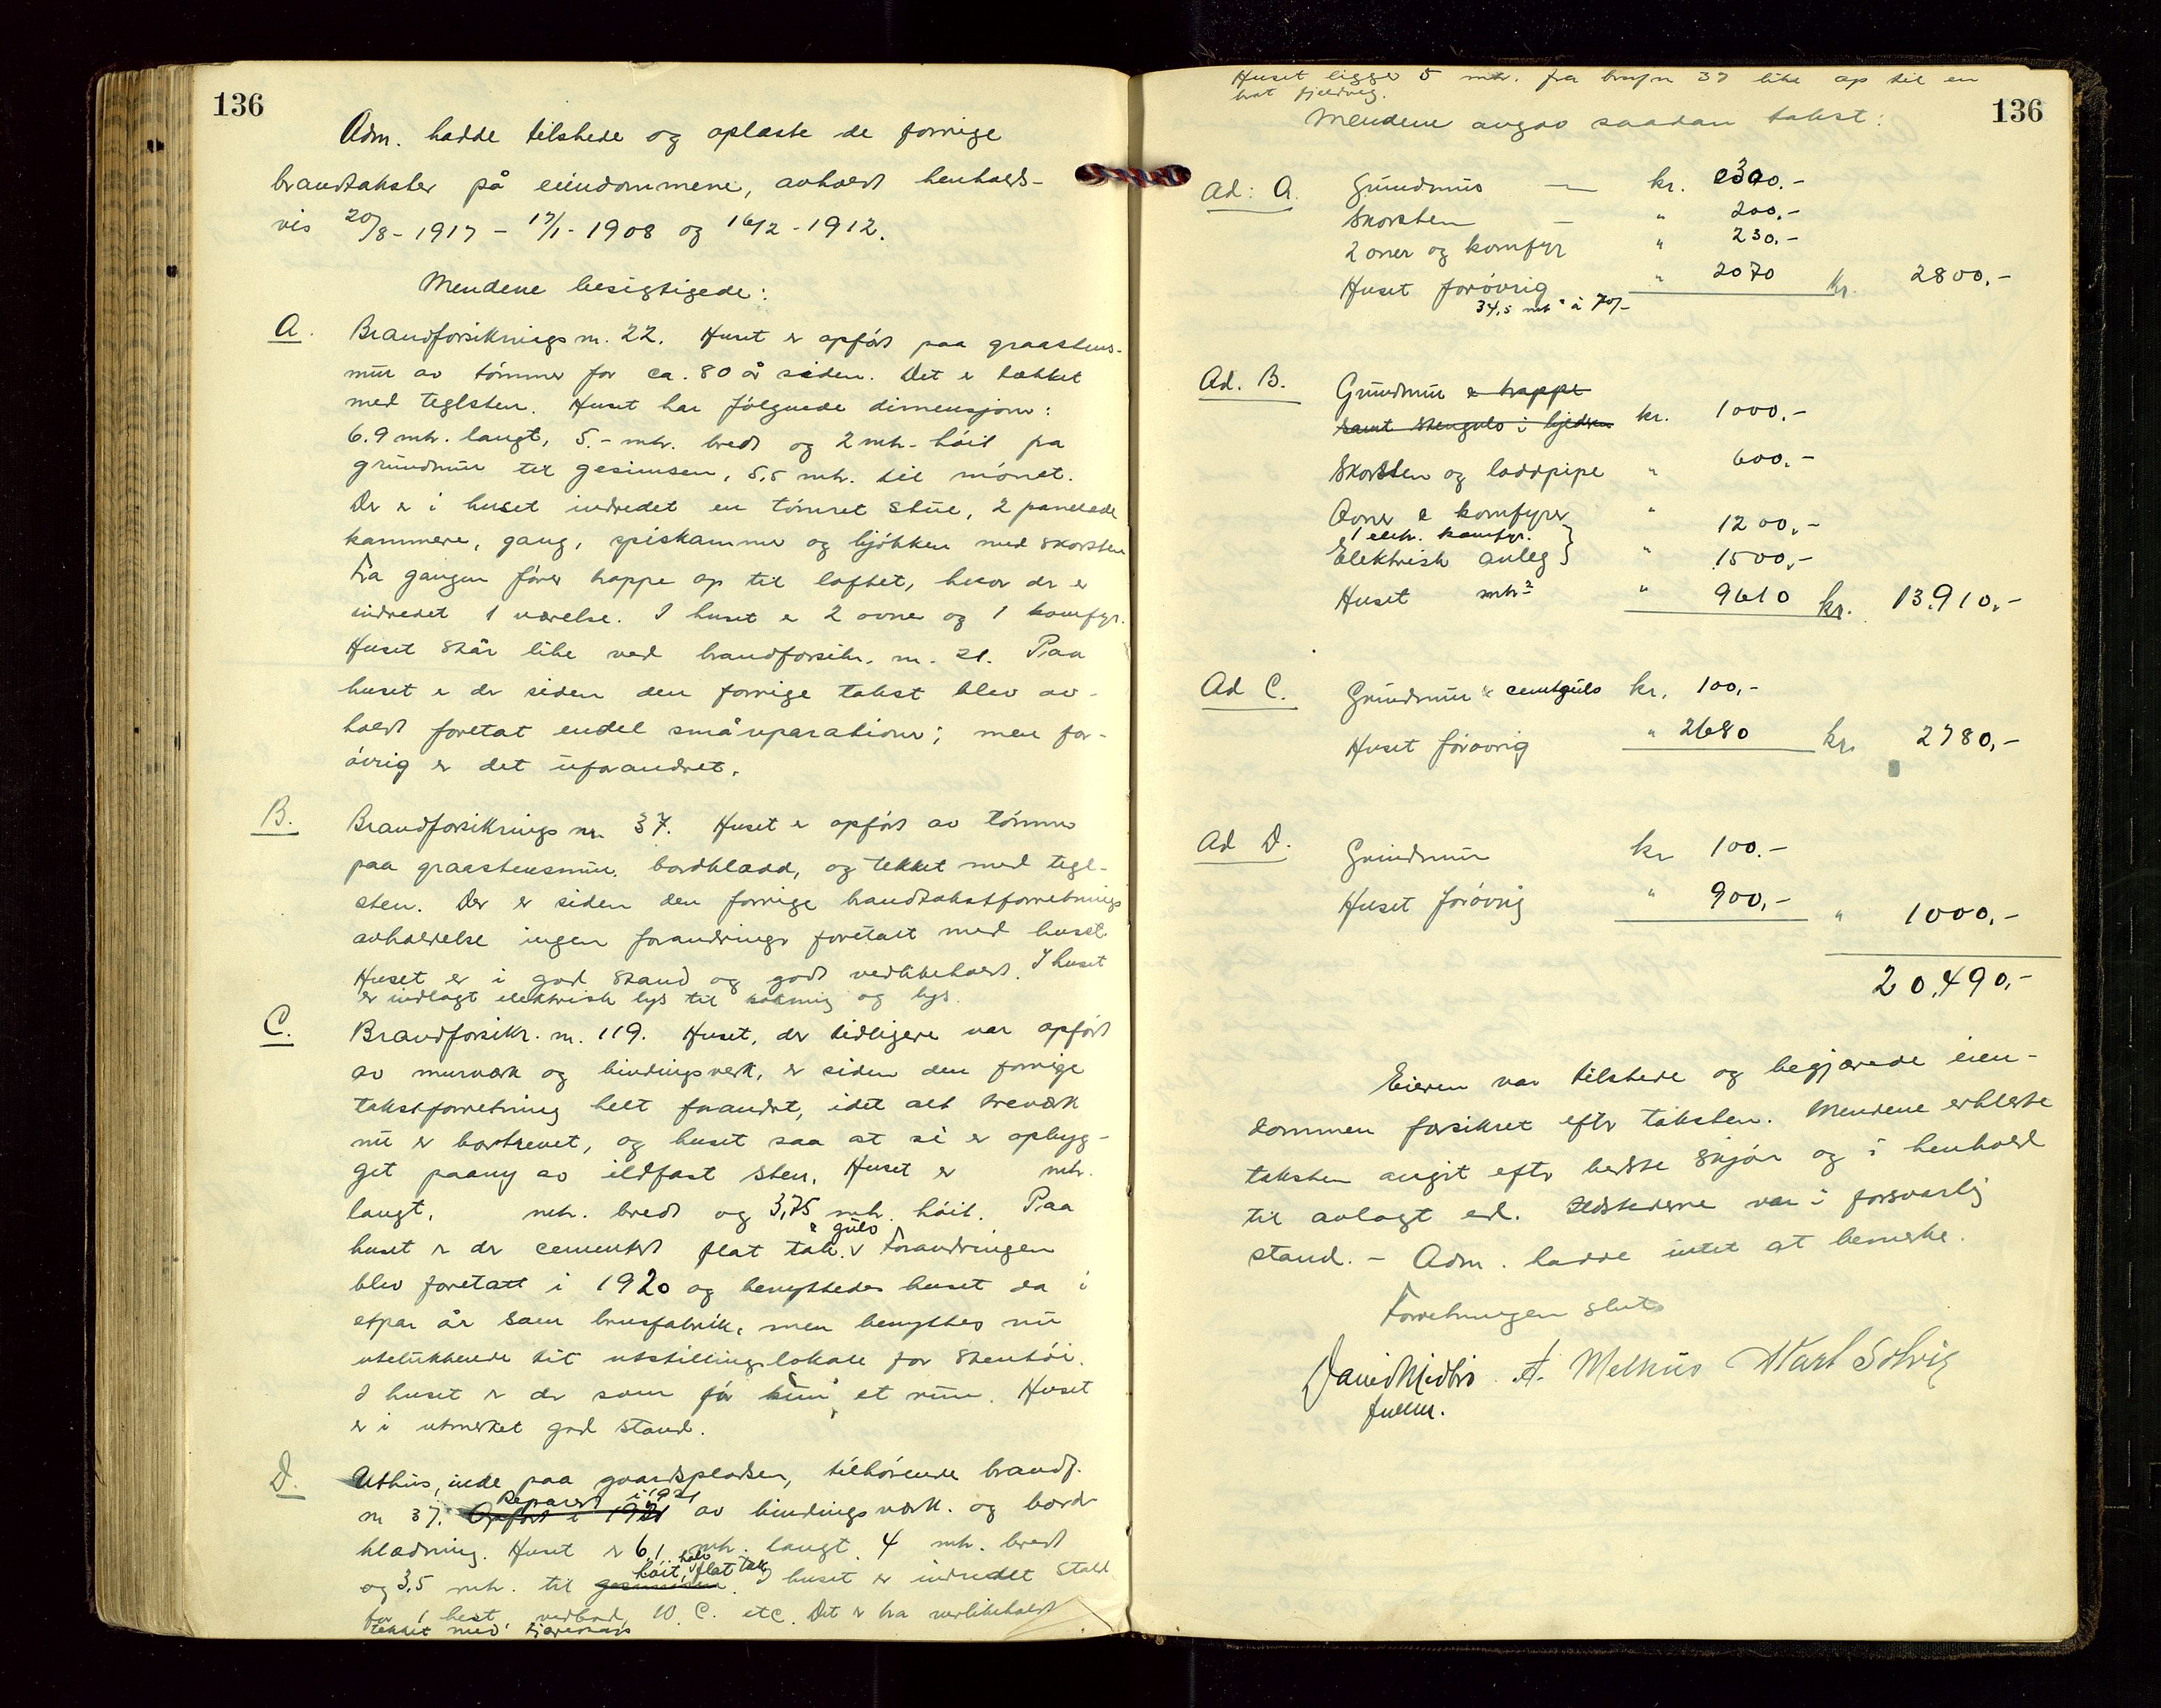 136
Adm. hadde tilstede og oplæste de forrige
brandtakster på eiendommene, avholdt henholds-
vis 20/8-1917 - 17/1-1908 og 16/2-1912.
Mendene besigtigede:
A. Brandforsikrings nr. 22. Huset er opført paa graastens-
mur av tømmer for ca. 80 år siden. Det er tækket
med teglsten. Huset har følgende dimensjoner:
6.9 mtr. langt, 5.- mtr. bredt og 2 mtr. höit fra
grundmur til gesimsen, 5,5 mtr. til mönet.
Der er i huset indredet en tömret stue, 2 panelede
kammere, gang, spiskammer og kjökken med skorsten
Fra gangen förer trappe op til loftet, hvor der er
indredet 1 værelse. I huset er 2 ovner og 1 komfyr.
Huset står like ved brandforsikr. nr. 21. Paa
huset er der siden den forrige takst blev av-
holdt foretat endel småreparationer; men for-
övrig er det uforandret.
B. Brandforsikrings nr. 37. Huset er opført av tömmer
paa graastensmur, bordklædd, og tekket med tegl-
sten. Der er siden den forrige brandtakstforretnings
avholdelse ingen forandringer foretatt med huset
Huset er i god stand og godt vedlikeholdt. I huset
er indlagt elektrisk lys til kokning og lys.
C. Brandforsikr. nr. 119. Huset, der tidligere var opført
av murværk og bindingsverk, er siden den forrige
takstforretning helt forandret, idet alt treværk
nu er bortrevet, og huset saa at si er opbyg-
get paany av ildfast sten. Huset er mtr.
langt, mtr. bredt og 3,75 mtr. höit. Paa
& gulv
huset er der cementert flat tak. Forandringen
blev foretatt i 1920 og benyttedes huset da i
etpar år som brusfabrik, men benyttes nu
utelukkende til utstillingslokale for stentöi.
I huset er der som för kun et rum. Huset
er i utmerket god stand.
D. Uthus, inde paa gaardspladsen, tilhörende brandf.
Reparert i 1921
nr 37. Opført i 1921 av bindingsværk. og bord-
klædning. Huset er 6,1 mtr. langt 4 mtr. bredt
höit, halv flat tak
og 3,5 mtr. til gesimsen. I huset er indredet stall
for 1 hest, vedbod, W.C. etc. Det er bra vedlikeholdt
tekket med tjærepap
Huset ligger 5 mtr. fra brnfr 37 like op til en
brat fjeldveg.
136
Mendene avgav saadan takst:
Ad: A. Grundmur — kr. 300.-
Skorsten — " 200,-
2 ovner og komfyr " 230.-
Huset forövrig " 2070 kr. 2800,-
34,5 mtr² à 70/-
Ad. B. Grundmur & trappe
samt stengulv i kjelderen kr. 1000,-
Skorsten og loddpipe " 600,-
Ovner & komfyrer " 1200,-
1 elektr. komfyr.
Elektrisk anleg " 1500,-
Huset mtr² " 9610 kr. 13.910,-
Ad C. Grundmur & cemtgulv kr. 100,-
Huset forövrig " 2680 kr. 2780,-
Ad D. Grundmur kr 100.-
Huset forövrig " 900,- " 1000,-
20.490,-
Eieren var tilstede og begjærede eien-
dommen forsikret efter taksten. Mendene erklerte
taksten avgit efter bedste skjön og i henhold
til avlagt ed. Ildstederne var i forsvarlig
stand. - Adm. hadde intet at bemerke.
Forretningen slut
David A. Melhus Karl Solvig
fullm.